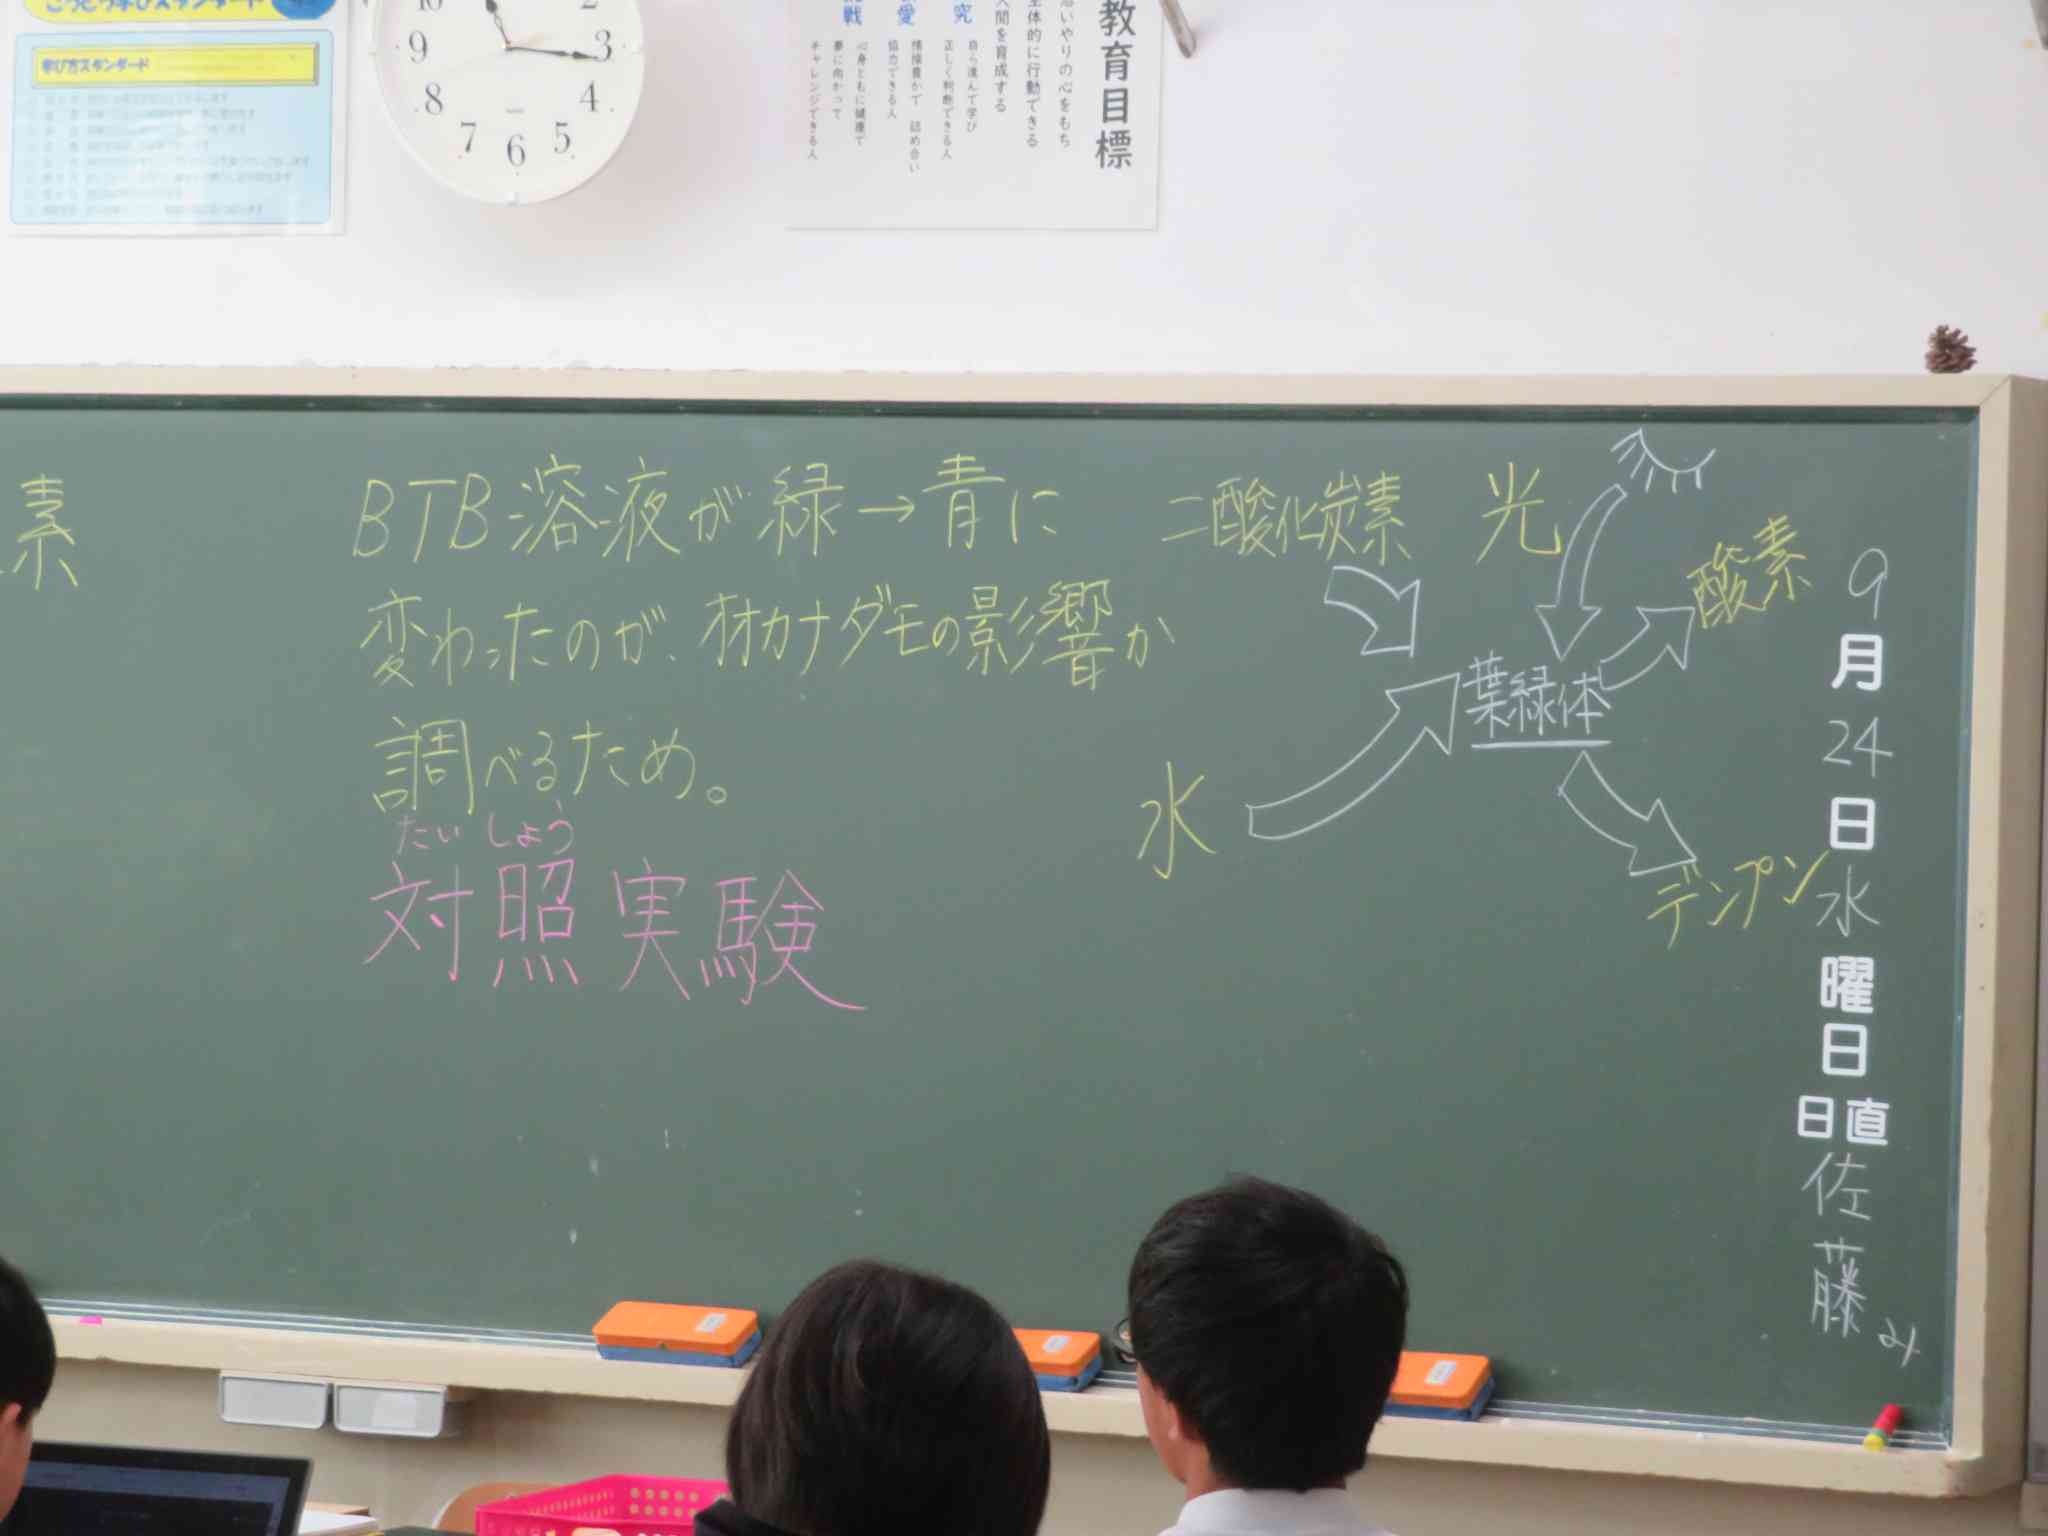 学び方スタンダード
10
2
9
3
8
4
7
5
6
教育目標
思いやりの心をもち
主体的に行動できる
人間を育成する
究
自ら進んで学び
正しく判断できる人
愛
協力できる人
戦
心身ともに健康で
夢に向かって
チャレンジできる人
素
BTB溶液が緑→青に
変わったのが、オオカナダモの影響か
調べるため。
たいしょう
対照実験
二酸化炭素
光
酸素
葉緑体
水
デンプン
9
月
24
日
水
曜
日
日直
佐
藤